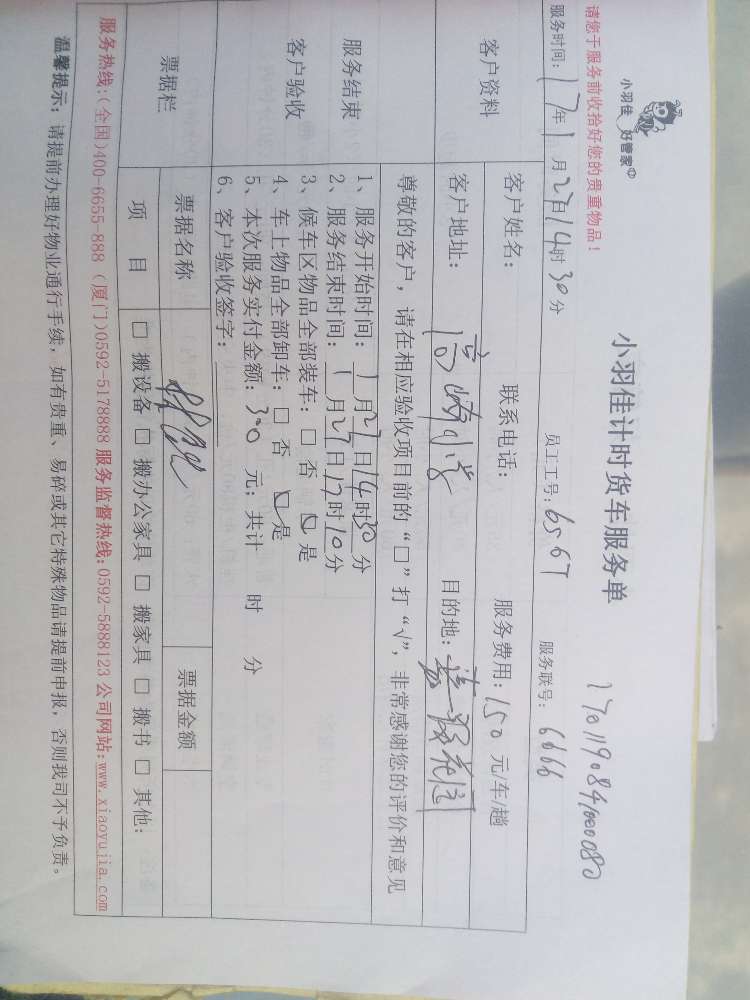 小羽佳 好管家
小羽佳计时货车服务单
170119084000080
请您于服务前收拾好您的贵重物品！
服务时间：17年1月27日14时30分 员工工号：6567 服务联号：6666
客户资料
客户姓名： 联系电话： 服务费用：150元/车/趟
客户地址：高崎小学 目的地：
尊敬的客户，请在相应验收项目前的“□”打“√”，非常感谢您的评价和意见
服务结束
客户验收
1、服务开始时间：1月27日14时30分
2、服务结束时间：1月27日17时10分
3、候车区物品全部装车：□ 否 □ 是
4、车上物品全部卸车：□ 否 □ 是
5、本次服务实付金额：300元；共计 时 分
6、客户验收签字：
票据栏
票据名称 票据金额
项 目 □ 搬设备 □ 搬办公家具 □ 搬家具 □ 搬书 □ 其他：
服务热线：(全国)400-6655-888 (厦门)0592-5178888 服务监督热线：0592-5888123 公司网站：www.xiaoyujia.com
温馨提示：请提前办理好物业通行手续，如有贵重、易碎或其它特殊物品请提前申报，否则我司不予负责。